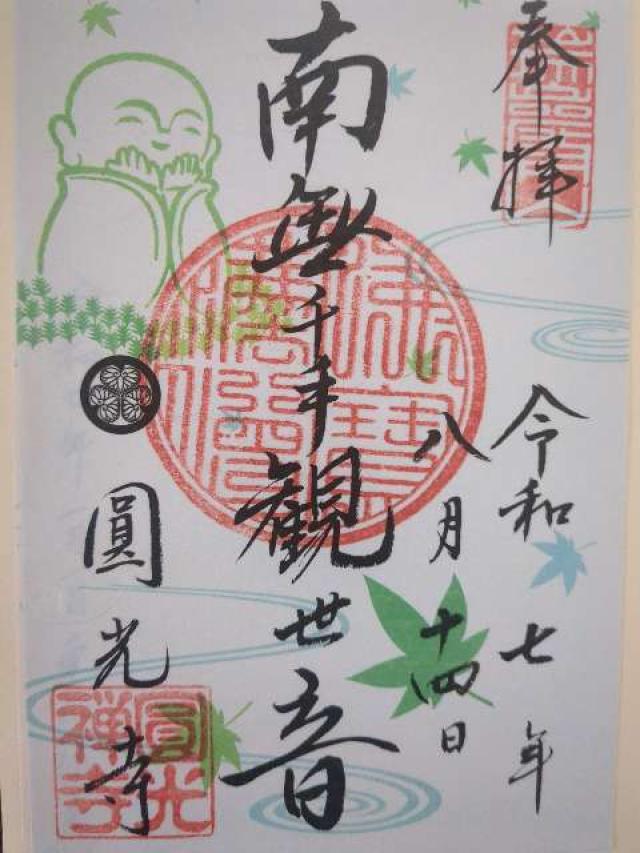 奉拝
令和七年
八月十四日
南無千手觀世音
圓光寺
圓光
禅寺